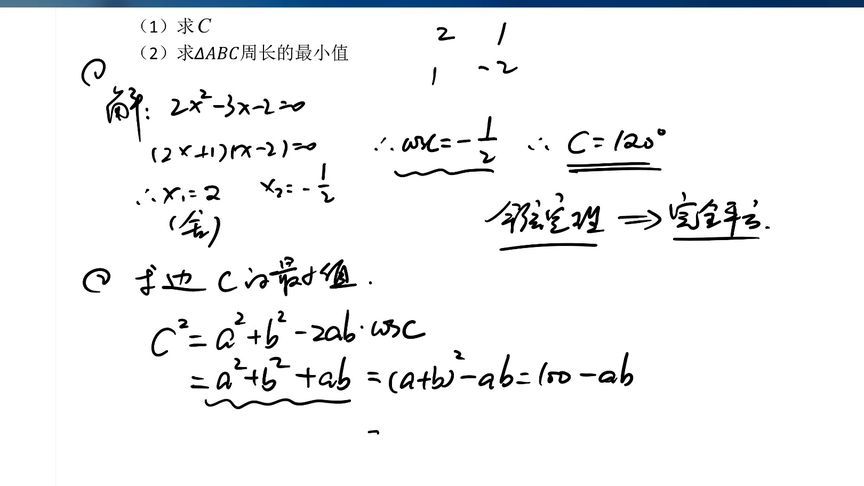 （1）求C
（2）求ΔABC周长的最小值
2 1
1 -2
①
解: 2x²-3x-2=0
(2x+1)(x-2)=0
∴x₁=2 x₂=-1/2
(舍)
∴cosC=-1/2 ∴ C=120°
余弦定理 ⇒ 完全平方.
② 求边 C 的最小值.
C²=a²+b²-2ab·cosC
=a²+b²+ab =(a+b)²-ab=100-ab